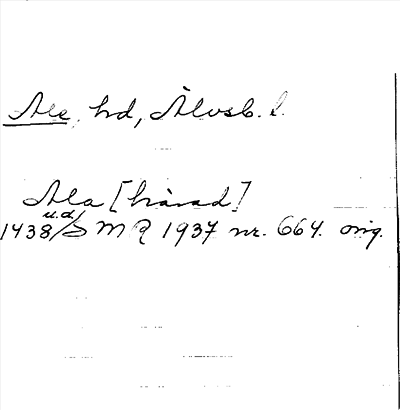 Ale, hd, Älvsb. l.
Ala [härad]
1438 u.d/S M R 1937 nr. 664. orig.